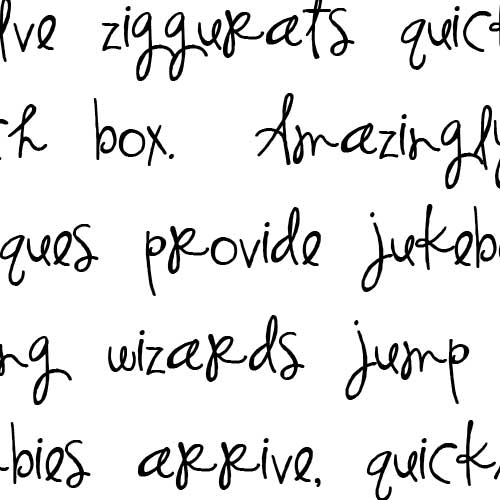 lve ziggurats quick
th box. Amazingly
ques provide jukeb
ng wizards jump
bies arrive, quick